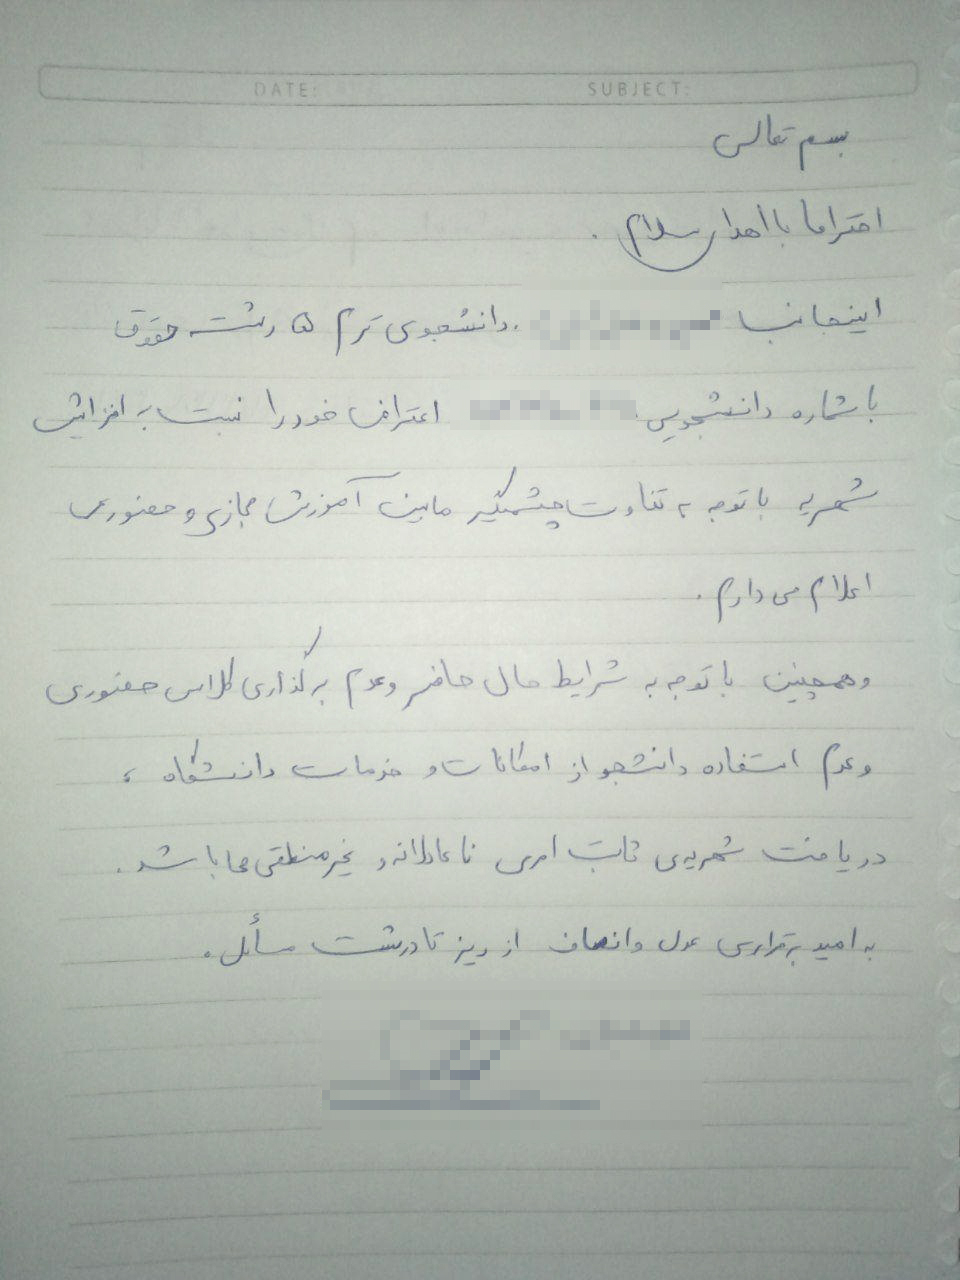 DATE: SUBJECT:
بسم تعالی
احتراما با اهدا سلام .
اینجانب دانشجوی ترم ۵ رشته حقوق
با شماره دانشجویی اعتراض خود را نسبت به افزایش
شهریه با توجه به تفاوت چشمگیر مابین آموزش مجازی و حضوری
اعلام می دارم .
و همچنین با توجه به شرایط حال حاضر و عدم برگذاری کلاس حضوری
و عدم استفاده دانشجو از امکانات و خدمات دانشگاه ،
دریافت شهریه‌ی ثابت امری ناعادلانه و غیر منطقی می باشد .
به امید برقراری عدل و انصاف از ریز تا درشت مسائل .